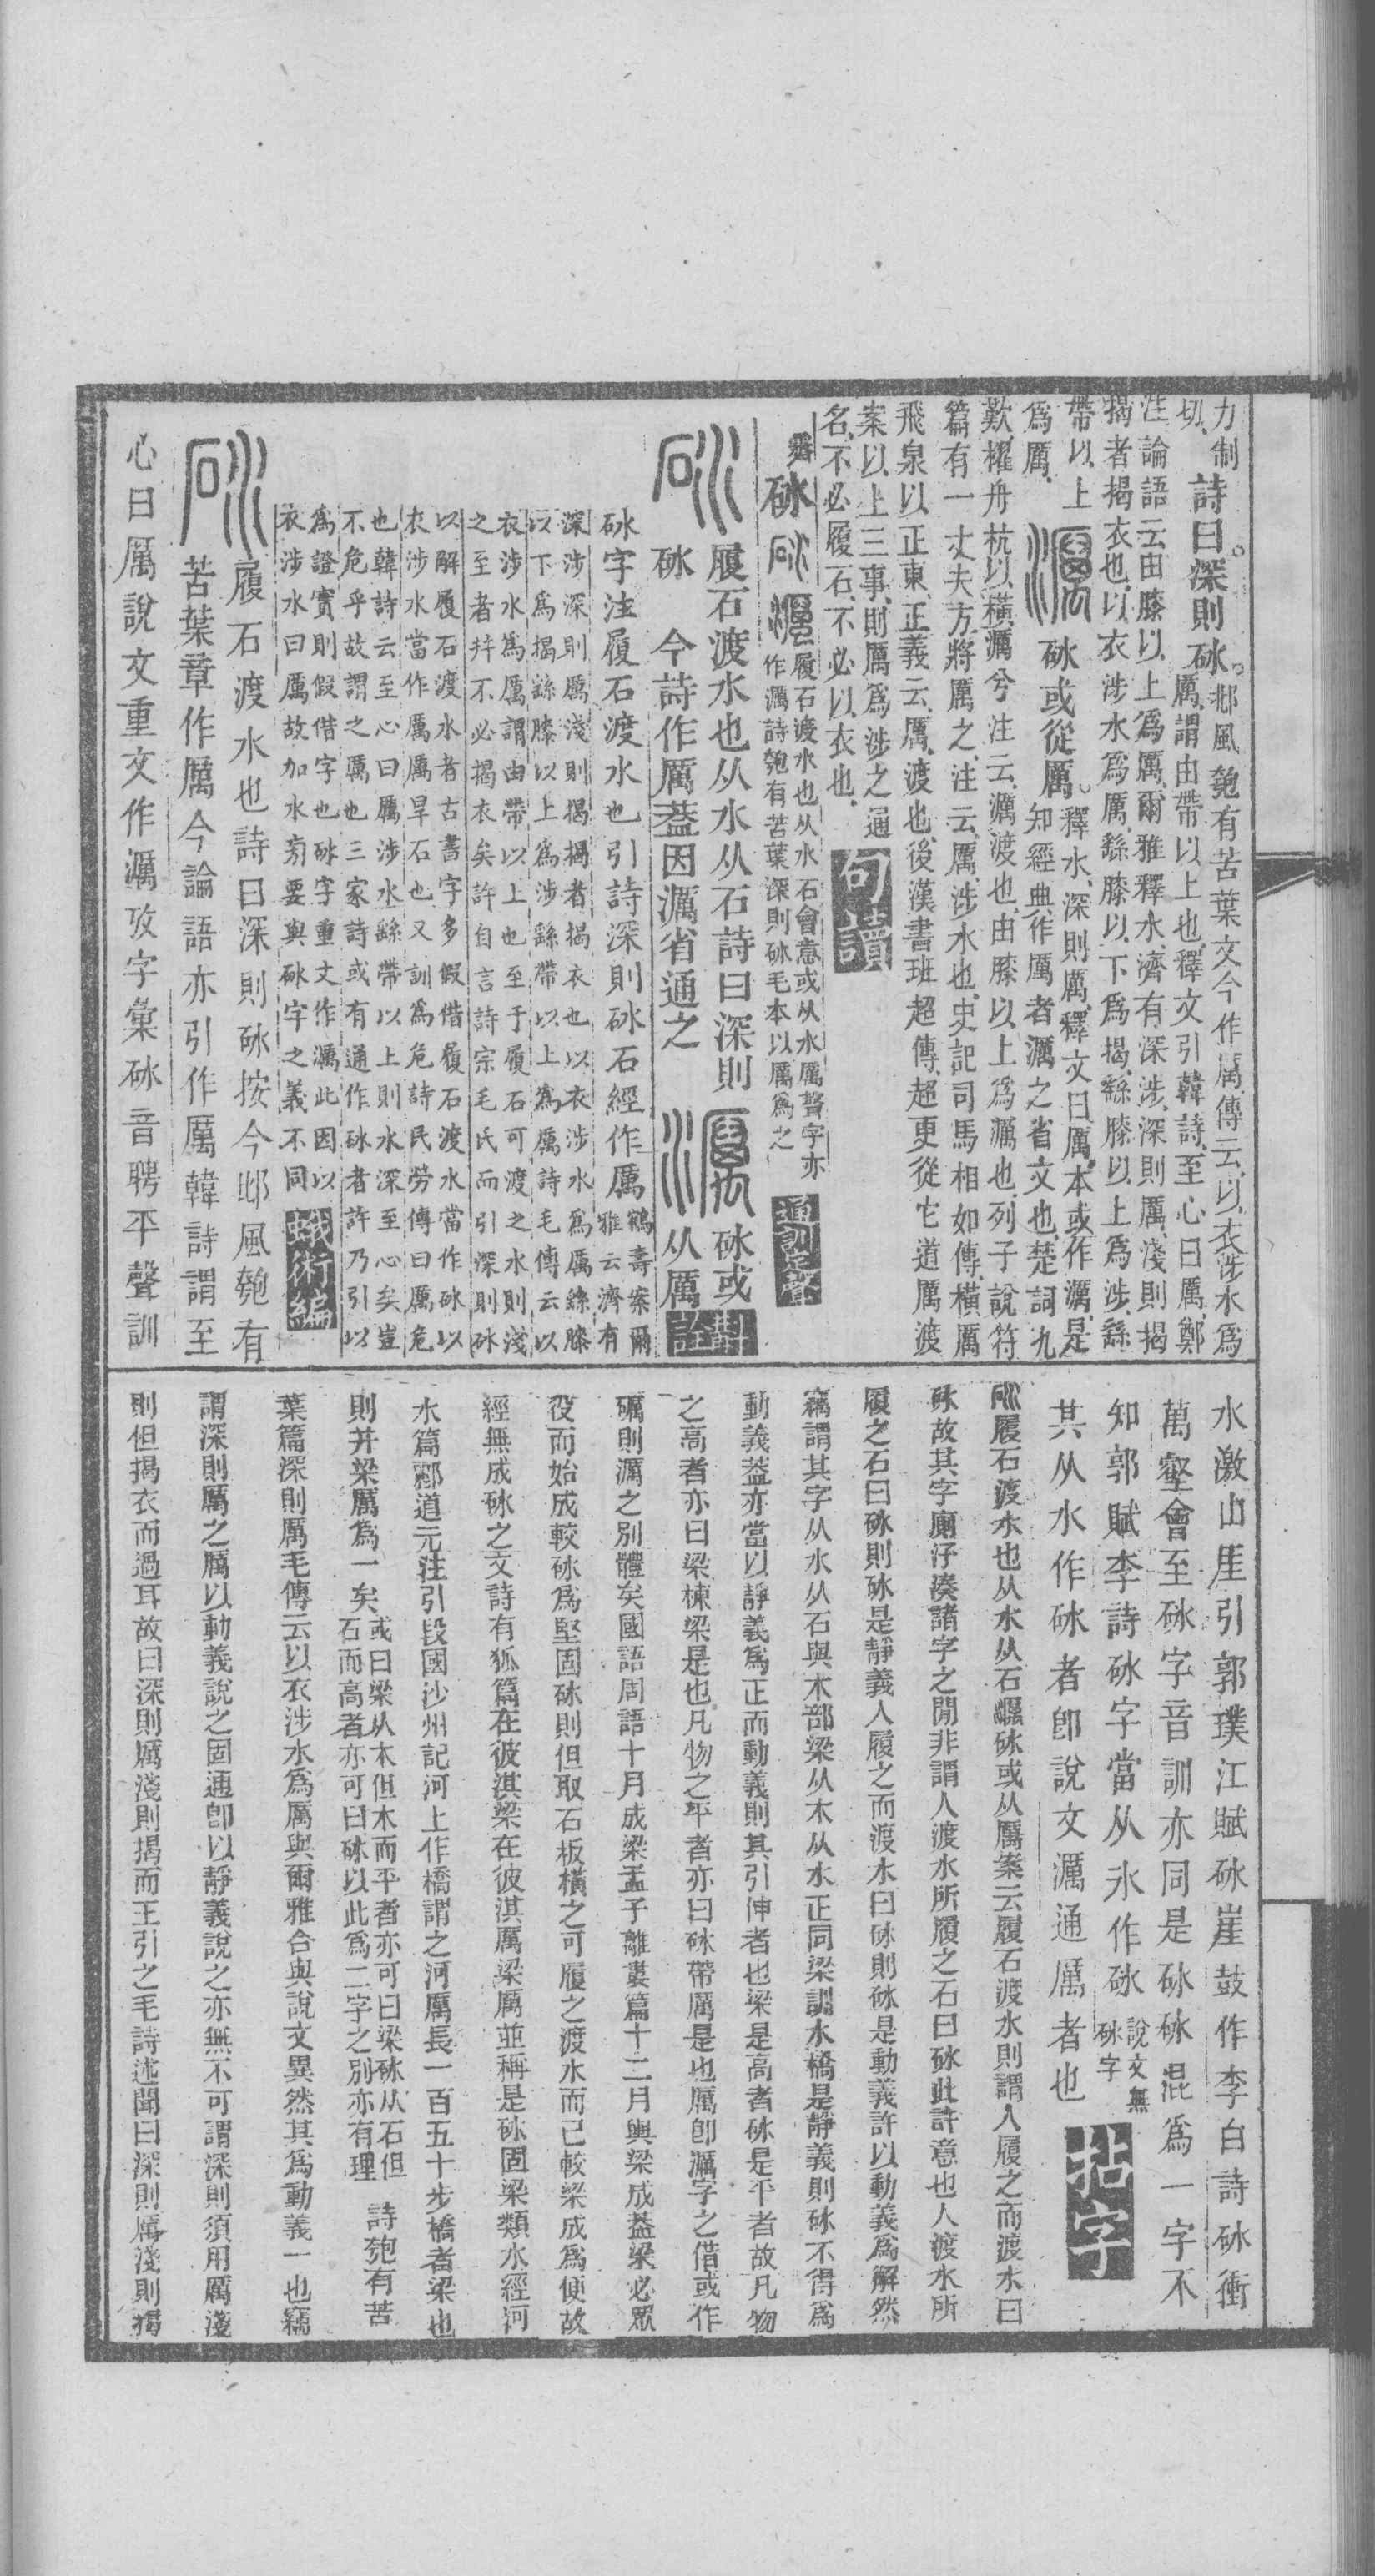 力制
切、
詩曰。深則砅。
邶風匏有苦葉文今作厲、傳云、以衣涉水爲
厲、謂由帶以上也、釋文引韓詩、至心曰厲、鄭
注論語云由膝以上爲厲、爾雅釋水、濟有深涉、深則厲、淺則揭
揭者揭衣也、以衣涉水爲厲、繇膝以下爲揭、繇膝以上爲涉、繇
帶以上
爲厲、
砅或從厲。
釋水、深則厲、釋文曰厲、本或作濿、是
知經典作厲者濿之省文也、楚詞九
歎、櫂舟杭以橫濿兮注云、濿渡也、由膝以上爲濿也、列子說符
篇有一丈夫方將厲之、注云、厲、涉水也、史記司馬相如傳、橫厲
飛泉以正東、正義云、厲、渡也、後漢書班超傳、超更從它道厲渡
案以上三事、則厲爲涉之通
名、不必履石、不必以衣也、
句讀
砅
履石渡水也从水石會意或从水厲聲字亦
作濿詩匏有苦葉深則砅毛本以厲爲之
通訓定聲
履石渡水也从水从石詩曰深則
砅 今詩作厲葢因濿省通之
砅或
从厲
斠詮
砅字注履石渡水也引詩深則砅石經作厲
鶴壽案爾
雅云濟有
深涉深則厲淺則揭揭者揭衣也以衣涉水爲厲繇膝
以下爲揭繇膝以上爲涉繇帶以上爲厲詩毛傳云以
衣涉水爲厲謂由帶以上也至于履石可渡之水則淺
之至者幷不必揭衣矣許自言詩宗毛氏而引深則砅
以解履石渡水者古書字多假借履石渡水當作砅以
衣涉水當作厲厲旱石也又訓爲危詩民勞傳曰厲危
也韓詩云至心曰厲涉水繇帶以上則水深至心矣豈
不危乎故謂之厲也三家詩或有通作砅者許乃引以
爲證實則假借字也砅字重文作濿此因以
衣涉水曰厲故加水㫄要與砅字之義不同
蛾術編
履石渡水也詩曰深則砅按今邶風匏有
苦葉章作厲今論語亦引作厲韓詩謂至
心曰厲說文重文作濿攷字彙砅音聘平聲訓
水激山厓引郭璞江賦砅崖鼓作李白詩砅衝
萬壑會至砅字音訓亦同是砅砅混爲一字不
知郭賦李詩砅字當从氷作砅
說文無
砅字
其从水作砅者卽說文濿通厲者也
拈字
履石渡水也从水从石砅或从厲案云履石渡水則謂人履之而渡水曰
砅故其字廁汓湊諸字之閒非謂人渡水所履之石曰砅此許意也人渡水所
履之石曰砅則砅是靜義人履之而渡水曰砅則砅是動義許以動義爲解然
竊謂其字从水从石與木部梁从木从水正同梁訓水橋是靜義則砅不得爲
動義葢亦當以靜義爲正而動義則其引伸者也梁是高者砅是平者故凡物
之高者亦曰梁棟梁是也凡物之平者亦曰砅帶厲是也厲卽濿字之借或作
礪則濿之別體矣國語周語十月成梁孟子離婁篇十二月輿梁成葢梁必眾
役而始成較砅爲堅固砅則但取石板橫之可履之渡水而已較梁成爲便故
經無成砅之文詩有狐篇在彼淇梁在彼淇厲梁厲並稱是砅固梁類水經河
水篇酈道元注引段國沙州記河上作橋謂之河厲長一百五十步橋者梁也
則并梁厲爲一矣
或曰梁从木但木而平者亦可曰梁砅从石但
石而高者亦可曰砅以此爲二字之別亦有理
詩匏有苦
葉篇深則厲毛傳云以衣涉水爲厲與爾雅合與說文異然其爲動義一也竊
謂深則厲之厲以動義說之固通卽以靜義說之亦無不可謂深則須用厲淺
則但揭衣而過耳故曰深則厲淺則揭而王引之毛詩述聞曰深則厲淺則揭